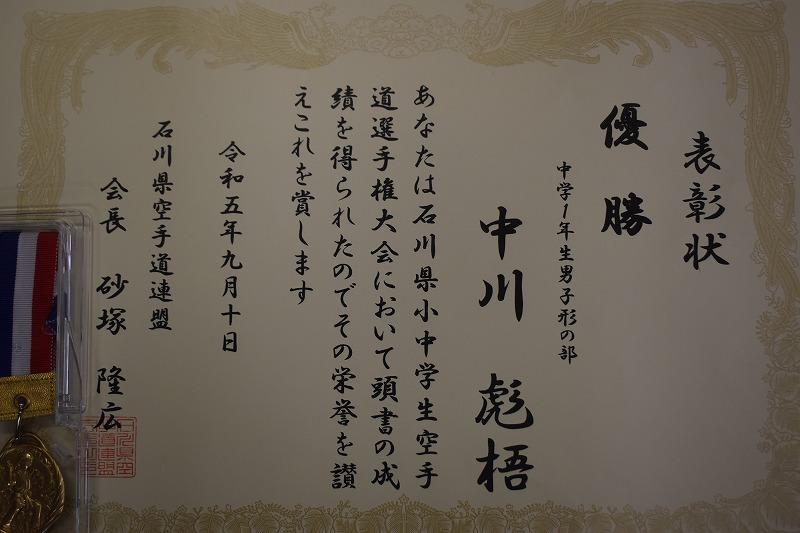 表彰状
優勝
中学1年生男子形の部
中川 彪梧
あなたは石川県小中学生空手
道選手権大会において頭書の成
績を得られたのでその栄誉を讃
えこれを賞します
令和五年九月十日
石川県空手道連盟
会長 砂塚 隆広